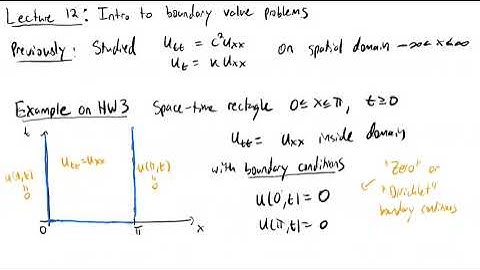 Lecture 12: Intro to boundary value problems
Previously: Studied u_tt = c²u_xx on spatial domain -∞<x<∞
u_t = κ u_xx
Example on HW3 Space-time rectangle 0≤x≤π, t≥0
u_tt = u_xx inside domain
with boundary conditions
u(0,t) = 0
u(π,t) = 0
"Zero" or
"Dirichlet"
boundary conditions
t
u(0,t)
=
0
u_tt = u_xx
u(π,t)
=
0
0 π x